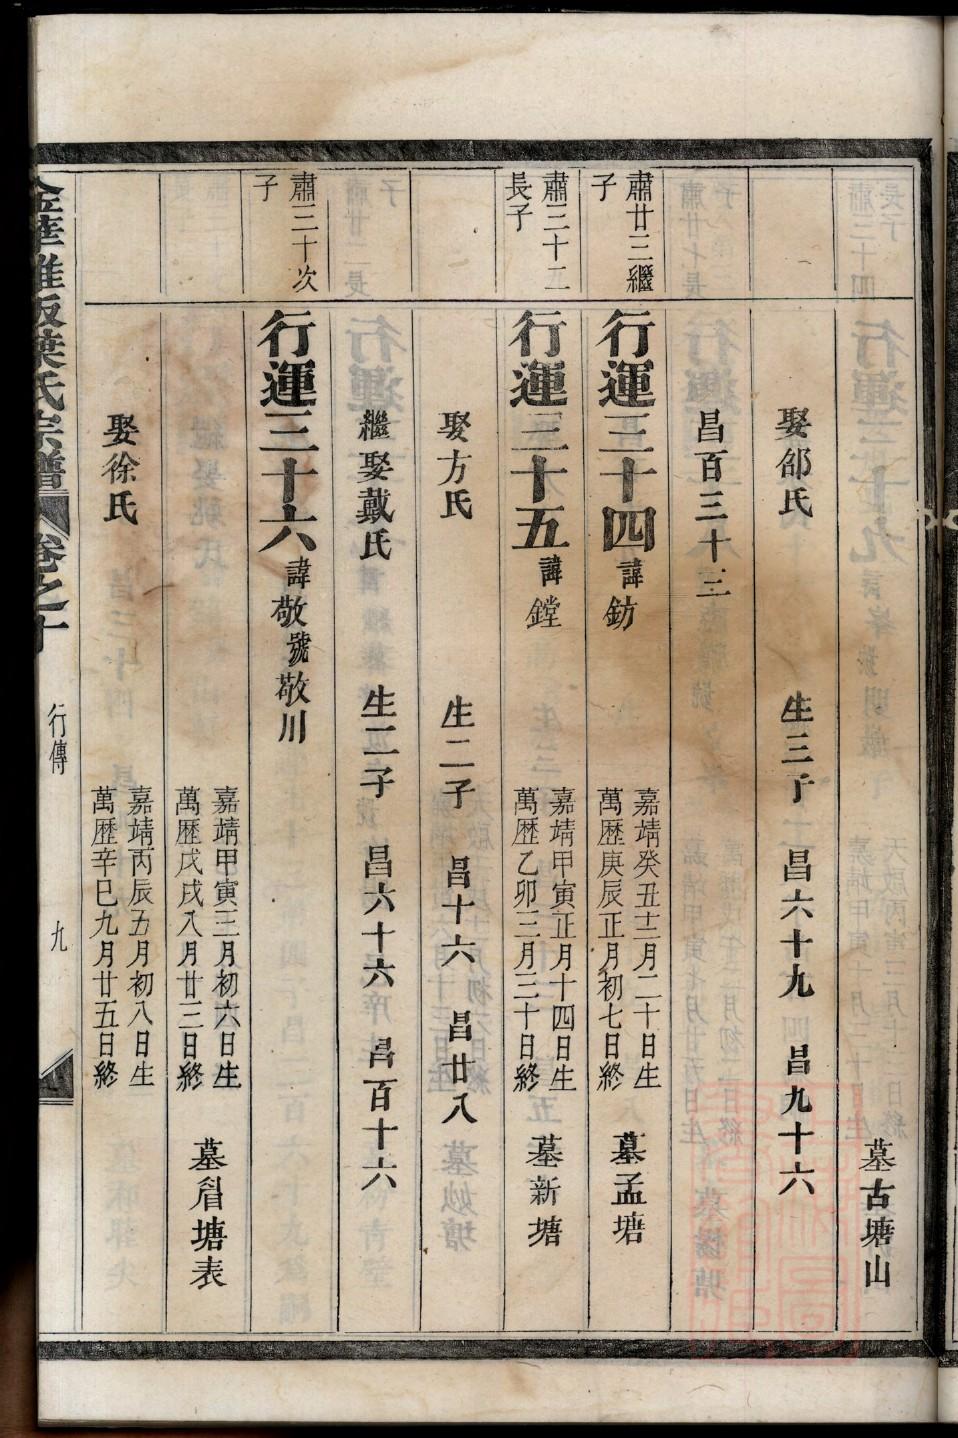 墓古塘山
娶郤氏 生三子 昌六十九 昌九十六
昌百三十三
肅廿三繼
子
行運三十四 諱鈁
嘉靖癸丑十二月二十日生
萬歷庚辰正月初七日終
墓孟塘
肅三十二
長子
行運三十五 諱鏜
嘉靖甲寅正月十四日生
萬歷乙卯三月三十日終
墓新塘
娶方氏 生二子 昌十六 昌廿八
繼娶戴氏 生二子 昌六十六 昌百十六
肅三十次
子
行運三十六 諱敬號敬川
嘉靖甲寅三月初六日生
萬歷戊戌八月廿三日終
墓眉塘表
娶徐氏
嘉靖丙辰五月初八日生
萬歷辛巳九月廿五日終
金華雅畈葉氏宗譜 卷之十 行傳 九